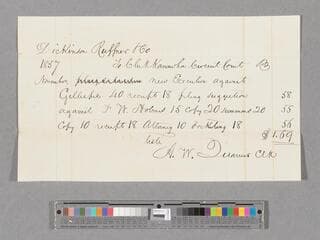 Dickinson Ruffner & Co
1857 To Clerk Kanawha Circuit Court
November new Execution against
Gillispie 40 receipt 18 filing suggestion 58
against W Holmes 15 copy 20 summons 20 55
Copy 10 receipt 18 Attorney 10 docketing 18 56
$ 1.69
teste
A. W. Clk